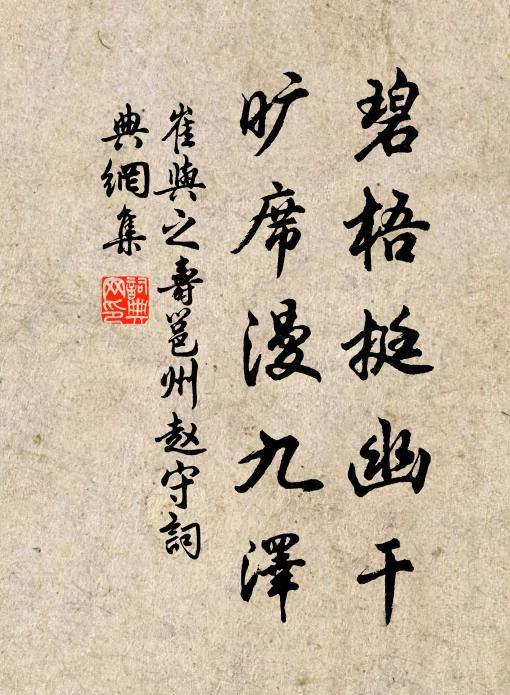 碧梧挺幽干
旷席漫九澤
崔與之壽邕州赵守詞
典網集
詞典网印